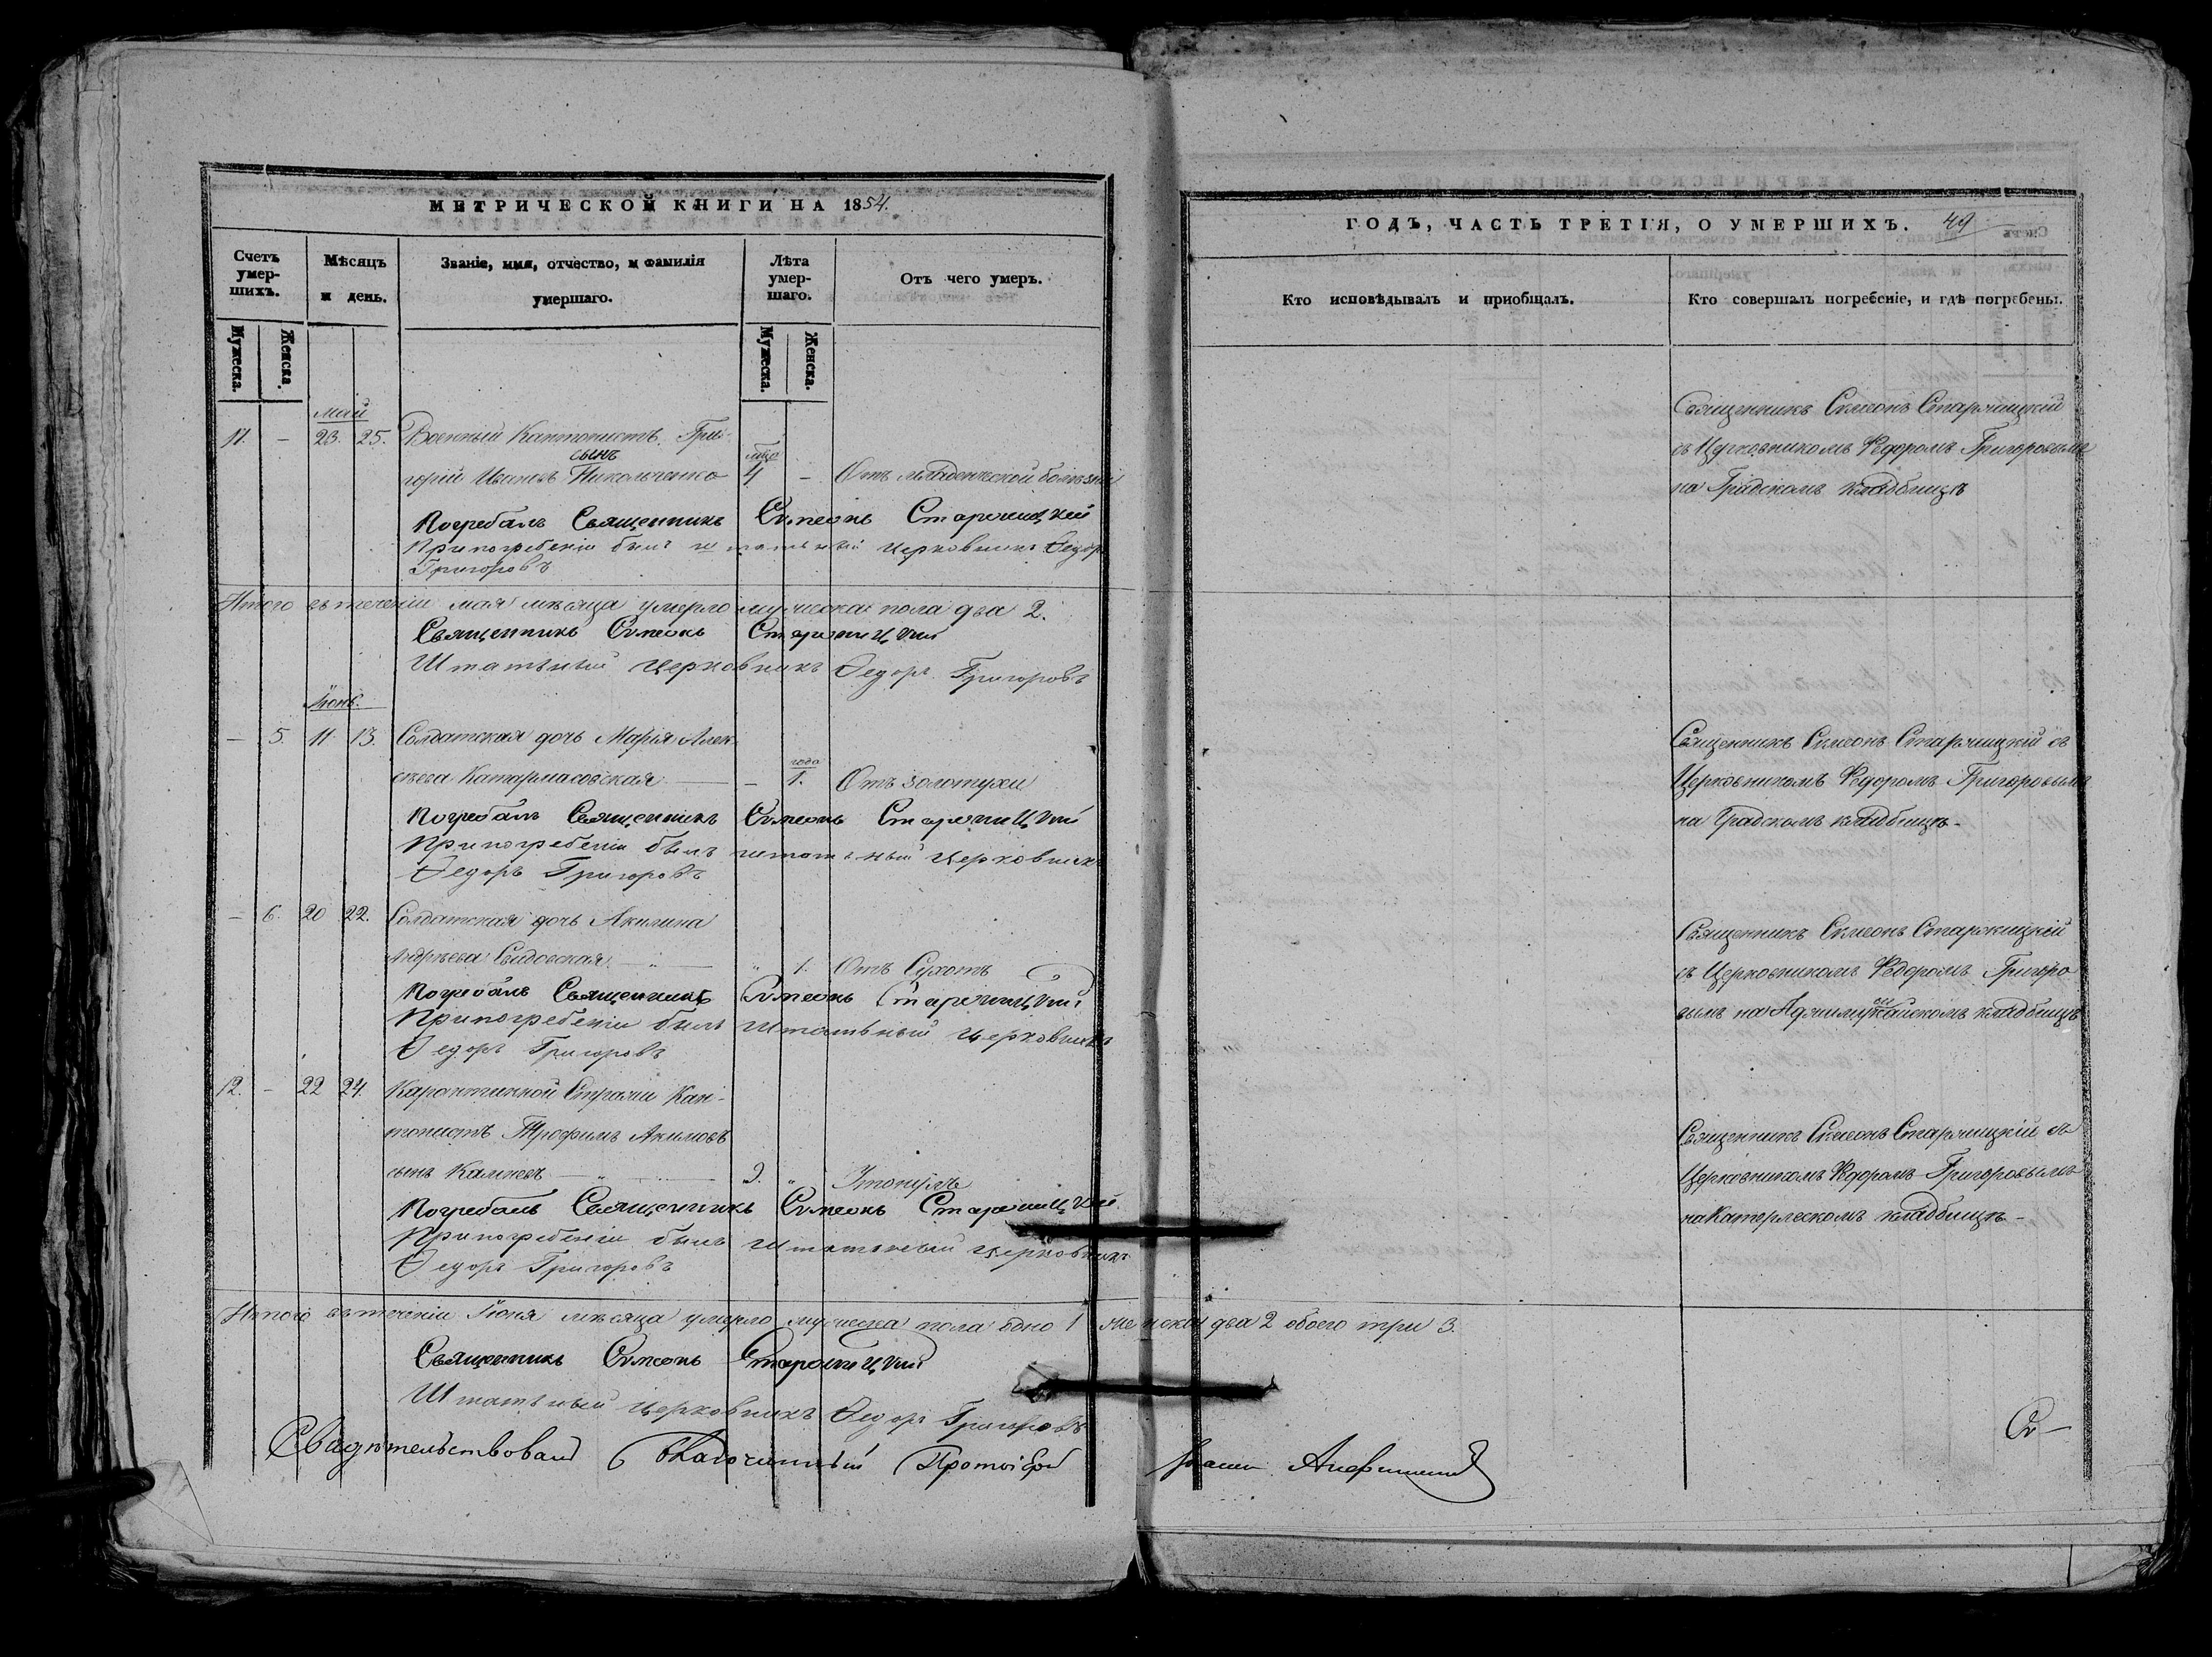 МЕТРИЧЕСКОЙ КНИГИ НА 1854.
Счетъ умер-шихъ.
Мѣсяцъ и день.
Званіе, имя, отчество, и фамилія умершаго.
Лѣта умер-шаго.
Отъ чего умеръ.
Мужеска.
Женска.
Мужеска.
Женска.
май
11. – 23. 25. Военный Кантонистъ Гри-
сынъ
горій Ивановъ Никольченко 4 – Отъ младенческой болѣзни
Погребалъ Священникъ Симеонъ Старчицкій
При погребеніи былъ штатный церковникъ Ѳедоръ
Григоровъ
Итого въ теченіи мая мѣсяца умерло мужеска пола два 2.
Священникъ Симеонъ Старчицкій
Штатный церковникъ Ѳедоръ Григоровъ
Іюнь.
– 5. 11 13. Солдатская дочь Марія Алек-
сѣева – года 1. Отъ золотухи
Погребалъ Священникъ Симеонъ Старчицкій
При погребеніи былъ штатный церковникъ
Ѳедоръ Григоровъ
– 6. 20 22. Солдатская дочь Акилина
Андрѣева " 1. Отъ Сухотъ
Погребалъ Священникъ Симеонъ Старчицкій
При погребеніи былъ Штатный церковникъ
Ѳедоръ Григоровъ
12. – 22 24. Карантинной Стражи Кан-
тонистъ Трофимъ Акимовъ
сынъ "
Погребалъ Священникъ Симеонъ Старчицкій
При погребеніи былъ Штатный церковникъ
Ѳедоръ Григоровъ
Итого въ теченіи Іюня мѣсяца умерло мужеска пола одно 1 женска два 2 обоего три 3.
Священникъ Симеонъ Старчицкій
Штатный церковникъ Ѳедоръ Григоровъ
Свидѣтельствовалъ Благочинный Протоіерей
ГОДЪ, ЧАСТЬ ТРЕТІЯ, О УМЕРШИХЪ. 49
Кто исповѣдывалъ и пріобщалъ.
Кто совершалъ погребеніе, и гдѣ погребены.
Священникъ Симеонъ Старчицкій
съ Церковникомъ Ѳедоромъ Григоровымъ
на Градскомъ кладбищѣ
Священникъ Симеонъ Старчицкій съ
Церковникомъ Ѳедоромъ Григоровымъ
на Градскомъ кладбищѣ –
Священникъ Симеонъ Старчицкій
съ Церковникомъ Ѳедоромъ Григоро
вымъ на кладбищѣ
Священникъ Симеонъ Старчицкій съ
Церковникомъ Ѳедоромъ Григоровымъ
на Катерлескомъ кладбищѣ –